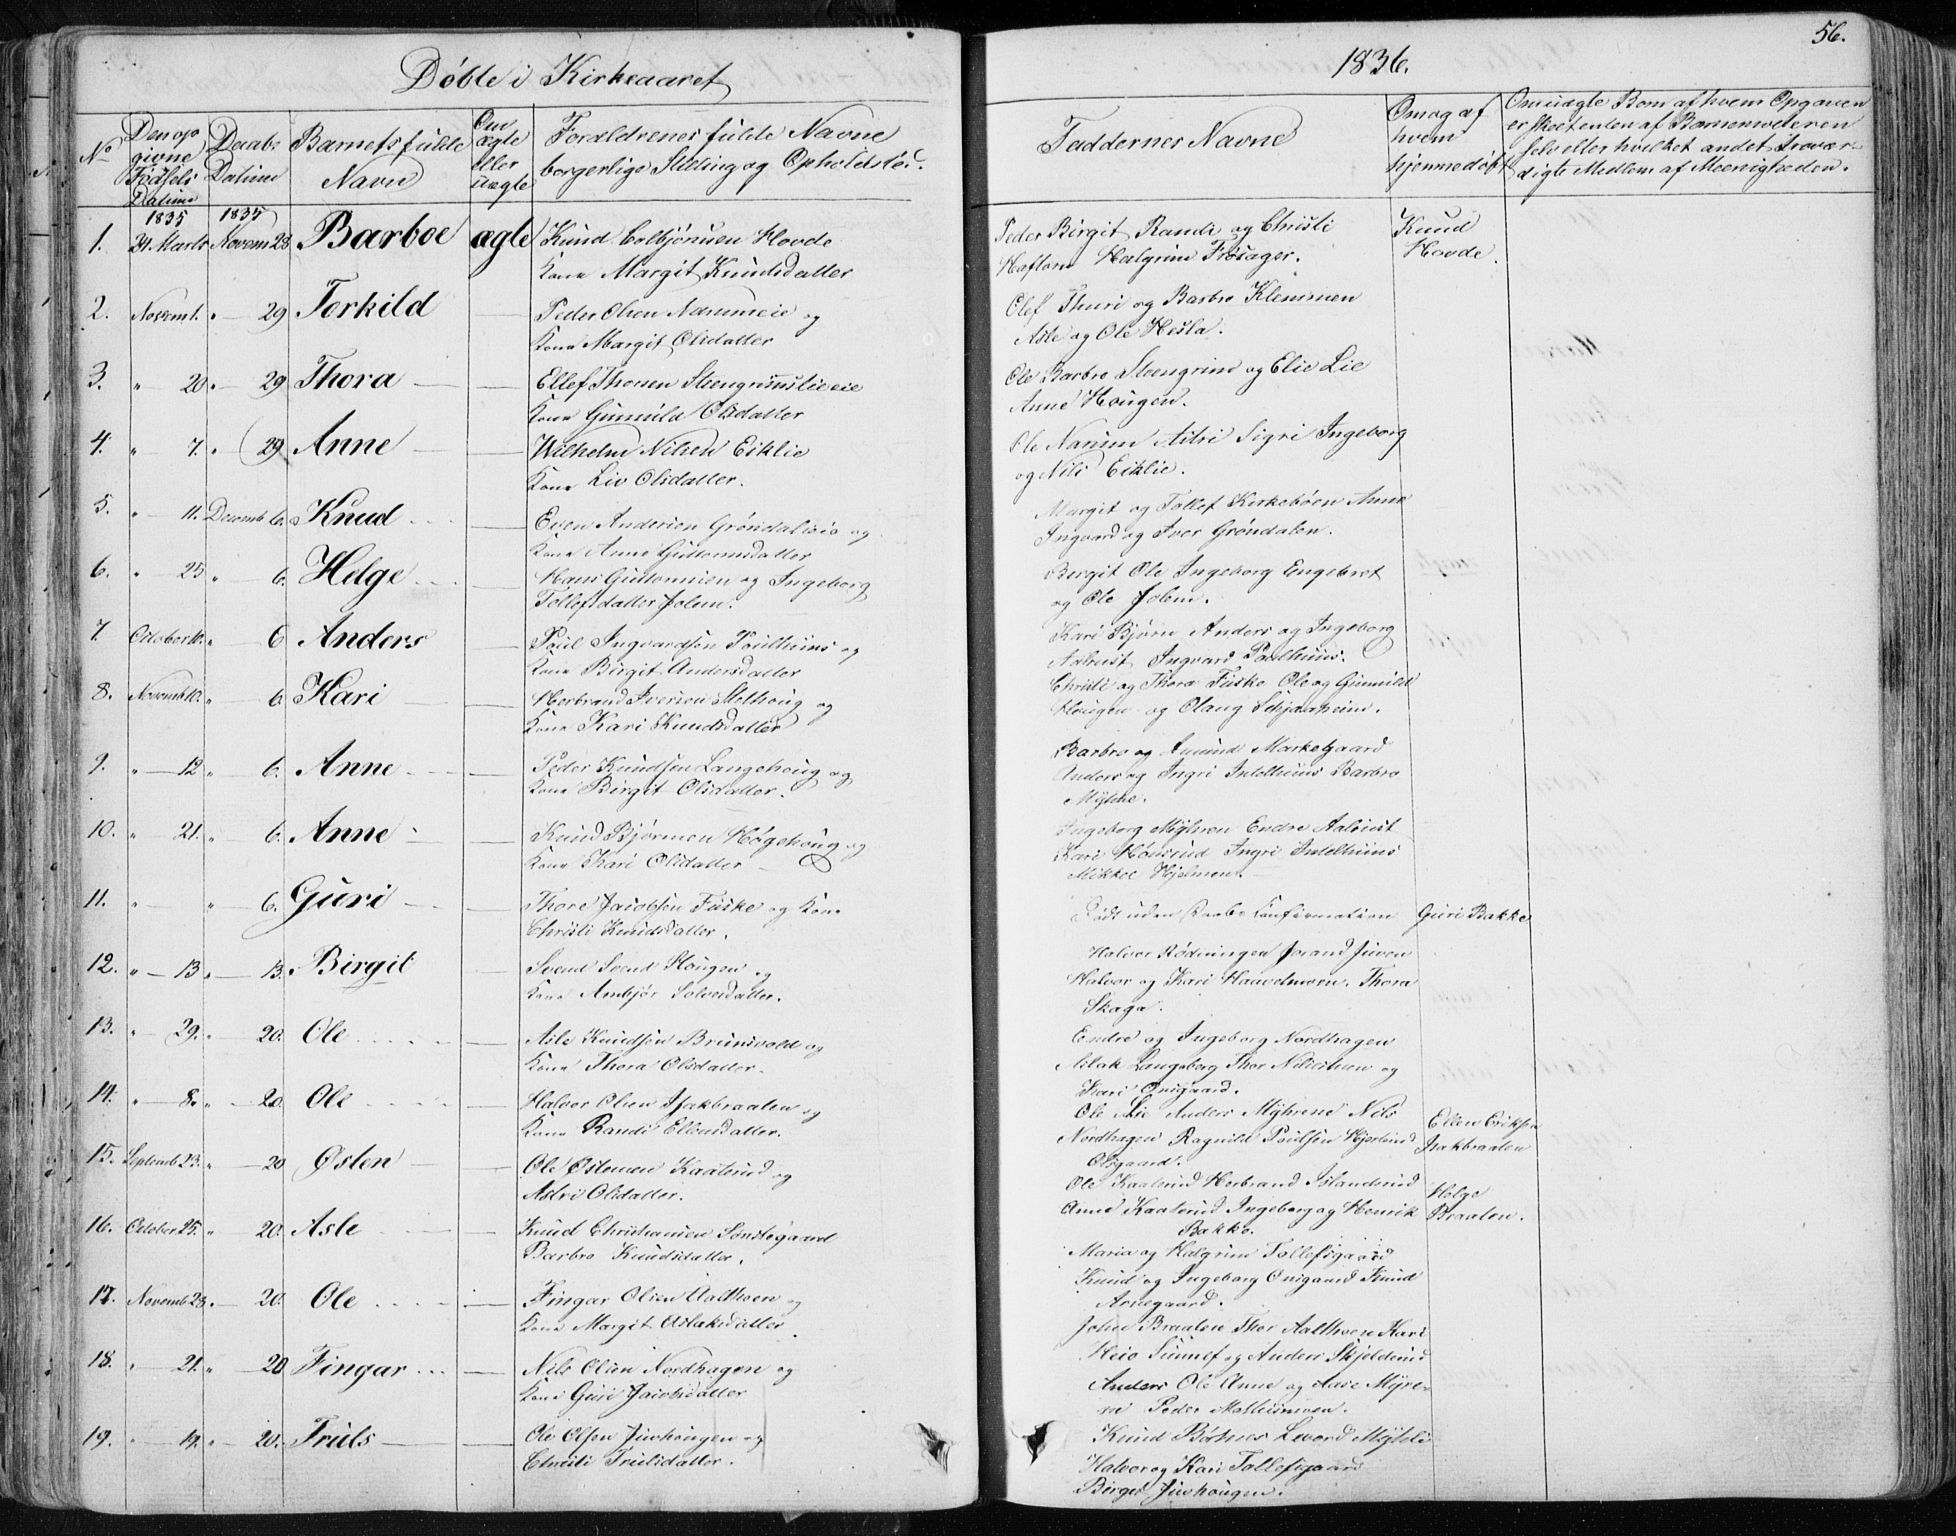 56.
Døbte i Kirkeaaret
1836.
No
Den op
givne
Fødsels
Datum
Daabs
Datum
Barnets fulde
Navn
Om
ægte
eller
uægte
Forældrenes fulde Navne
borgerlige Stilling og Opholdsted.
Faddernes Navne
Om og af
hvem
hjemmedøbt
Om uægte Børn af hvem Opgaven
er skeet enten af Barnemoderen
selv eller hvilket andet trovær-
digte Medlem af Meenigheden.
1. 1835 31 Marts 1835 Novem 28 Barboe ægte Knud Hovde
Kone Margit Knudsdatter
Peder Birgit Randi og Christi
Halgrim Frøsager.
Knud
Hovde.
2. Novem 1. " 29 Torkild Peder Olsen og
Kone Margit Olsdatter
Olef Thuri og Barbro Klemmen
Asle og Ole Hesla.
3. " 20 " 29 Thora Ellef Thoresen
Kone Gunnild Olsdatter
Ole Barbro Steengrim og Elie Lie
Anne Hougen.
4. " 7. " 29 Anne Wilhelm Nilsen Eiklie
Kone Liv Olsdatter.
Ole Narum Astri Sigri Ingeborg
og Nils Eiklie.
5. " 11. Decemb 6. Knud Even Andersen Grøndalseie og
Kone Anne Guttormsdatter
Margit og Tollef Kirkebøen Anne
Ingvard og Iver Grøndalen.
6. " 25 " 6. Helge Hans Guttormsen og Ingeborg
Tollefsdatter
Bergit Ole Ingeborg Engebret
og Ole
7. October 10. " 6 Anders Poul Ingvardsen Poulhuus og
Kone Birgit Andersdatter
Kari Bjørn Anders og Ingeborg
Ingvard Poulhuus.
8. Novemb 10. " 6 Kari Herbrand Iversen Slethoug og
Kone Kari Knudsdatter
Christi og Thora Fuske Ole og Gunnild
Hougen og Olaug Schjaaheim.
9. " 12 " 6. Anne Peder Knudsen Langehoug og
Kone Birgit Olsdatter.
Barbro og Amund Markegaard
Anders og Ingri Intelhuus Barbro
10. " 21. " 6. Anne Knud Bjørnsen Høgehoug og
Kone Kari Olsdatter
Ingeborg Myhren Endre
Kari Ingri Intelhuus
Mikkel Hjelmen.
11. " " 6. Guri Thore Jacobsen Fuske og Kone
Christi Knudsdatter.
Født uden Daabs Confirmation Guri Bakke
12. " 13 " 13. Birgit Svend Svend Hougen og
Kone Ambjør Solvesdatter.
Halvor Rødningen Jorand Juven
Halvor og Kari Haavelmoen. Thora
Skaga.
13. " 29. " 20. Ole Asle Knudsen Brunsvold og
Kone Thora Olsdatter.
Endre og Ingeborg Nordhagen
Aslak Langeberg Thor og
Kari Onsgaard.
14. " 8. " 20 Ole Halvor Olsen Isakbraaten og
Kone Randi Ellensdatter.
Ole Lie Anders Myhrene Nils
Nordhagen Ragnild Poulsen
Olsgaard.
Ellen Eriksen
Isakbraaten
15. Septemb 23. " 20 Østen Ole Østensen Kaalsrud og
Astri Olsdatter.
Ole Kaalsrud Herbrand Islandsrud
Anne Kaalsrud Ingeborg og Henrik
Bakke.
Helge
Braaten.
16. October 25. " 20. Asle Knud Christiansen Sønstegaard
Barbro Knudsdatter.
Maria og Halgrim Tollefsgaard
Knud og Ingeborg Onsgaard Knud
Arnegaard.
17. Novemb 28. " 20. Ole Fingar Olsen Aalthoen og
Kone Margit Aslaksdatter
John Braaten Thor Aalthoen Kari
Heio Sunnef og Anders Skjeldsrud
18. " 21. " 20 Fingar Nils Olsen Nordhagen og
Kone Guri Jacobsdatter
Anders Ole Anne og Aase Myre-
ne Peder
19. " 19. " 20. Truls Ole Olsen Juvhougen og
Christi Trulsdatter.
Knud
Halvor og Kari Tollefsgaard
Birgit Juvhougen.